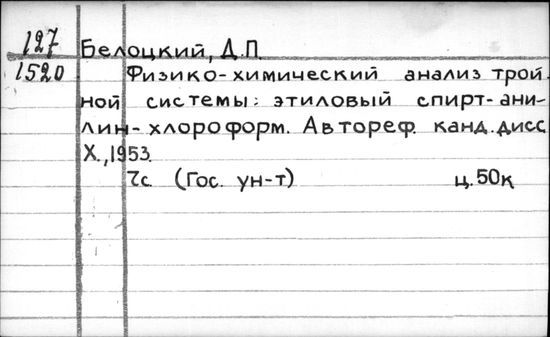 127 Белоцкий, Д.П.
1520 Физико-химический анализ трой
ной системы: этиловый спирт-ани-
лин-хлороформ. Автореф. канд. дисс.
Х., 1953.
7с. (Гос. ун-т) ц. 50к